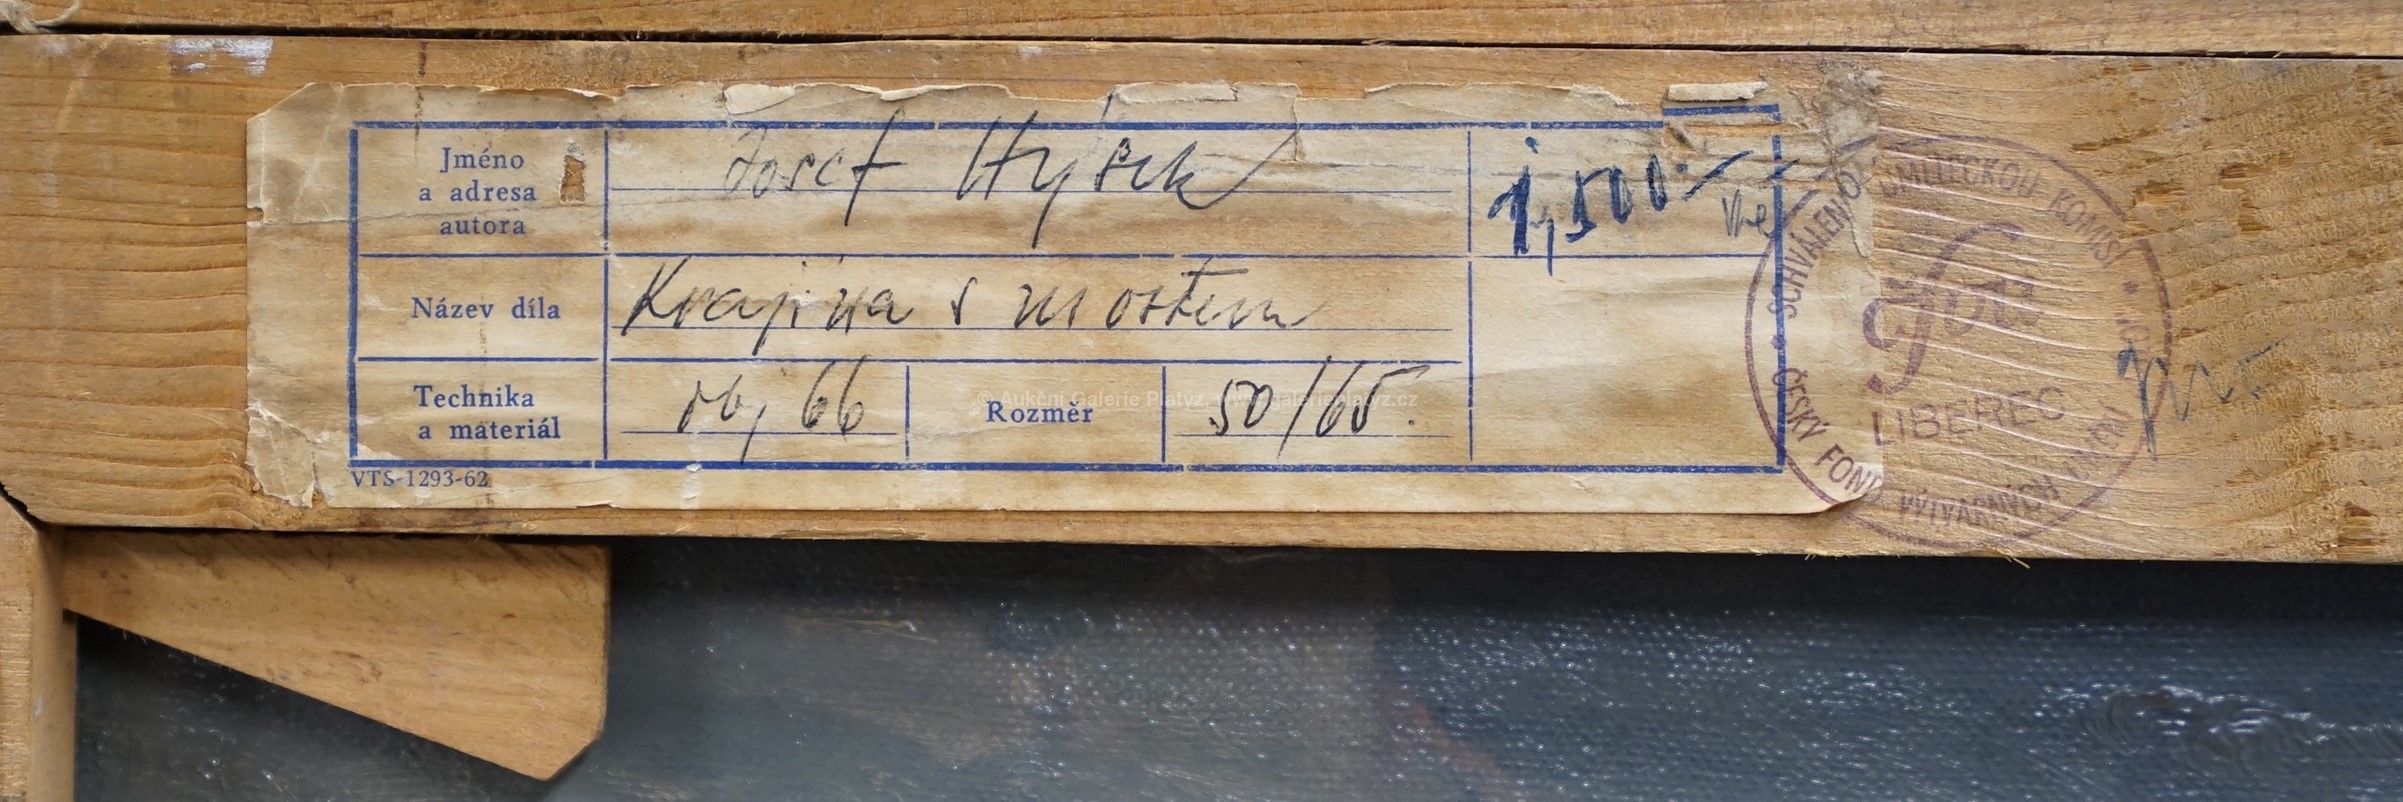 Jméno
a adresa
autora
Josef Hýsek
1,500.-
Kčs
Název díla
Krajina s mostem
Technika
a materiál
olej 66
Rozměr
50/65.
VTS-1293-62
SCHVÁLENO UMĚLECKOU KOMISÍ
LIBEREC
ČESKÝ FOND VÝTVARNÝCH UMĚNÍ
© Aukční Galerie Platýz, www.galerieplatyz.cz